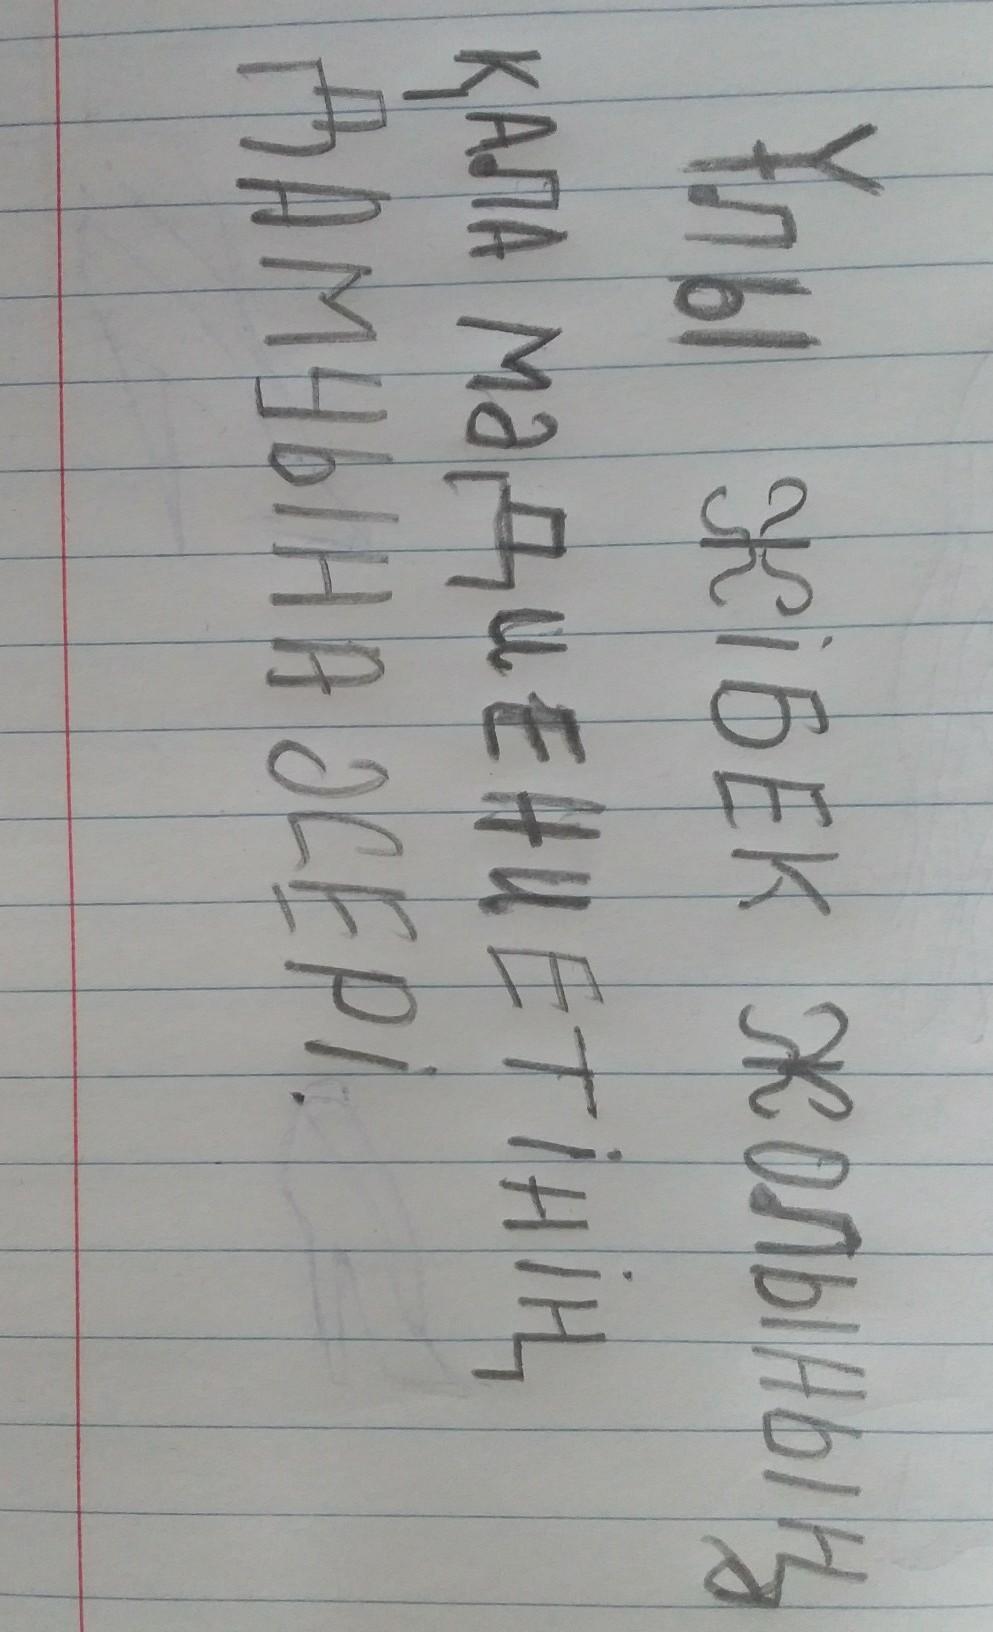 ҰЛЫ ЖІБЕК ЖОЛЫНЫҢ
ҚАЛА МӘДИЕНИЕТІНІҢ
ДАМУЫНА ӘСЕРІ.